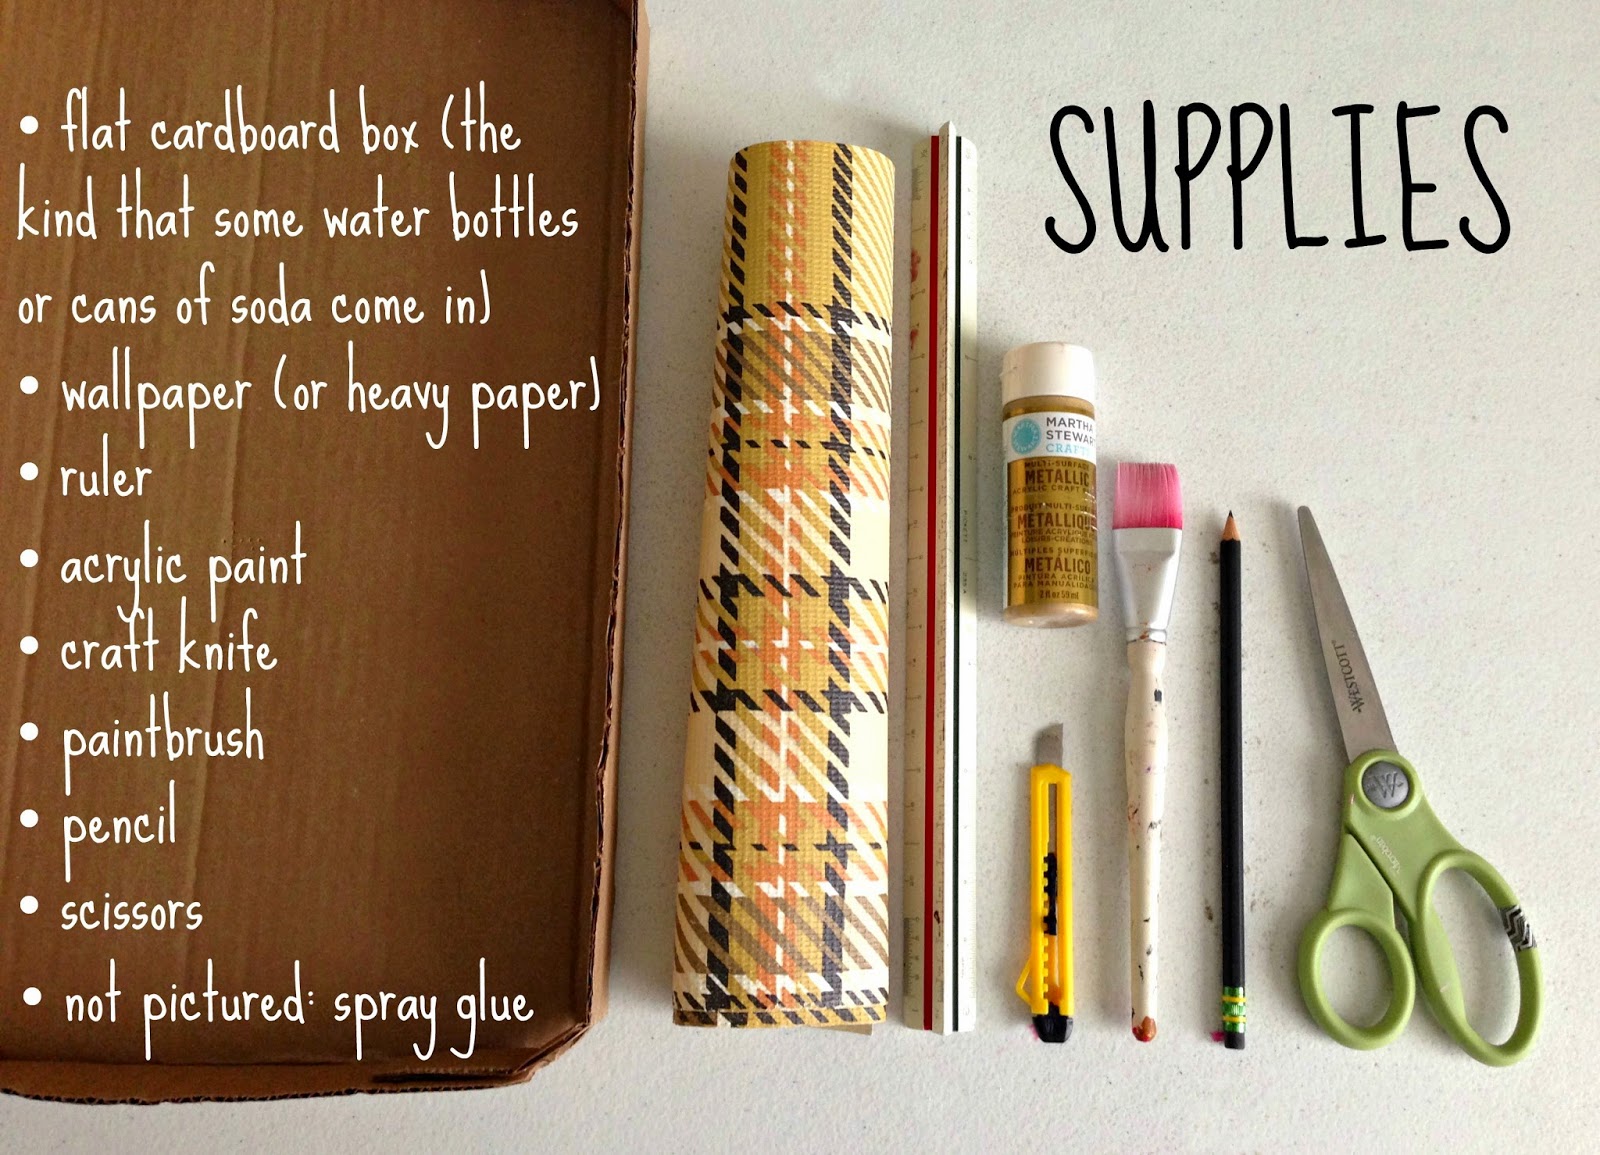 SUPPLIES
• flat cardboard box (the
kind that some water bottles
or cans of soda come in)
• wallpaper (or heavy paper)
• ruler
• acrylic paint
• craft knife
• paintbrush
• pencil
• scissors
• not pictured: spray glue
MARTHA
STEWAR
CRAFT
MULTI-SURFACE
METALLIC
ACRYLIC CRAFT
PRODUIT MULTI-SUR
METALLIQUE
PEINTURE ACRYLIQUE
LOISIRS-CRÉATIONS
MÚLTIPLES SUPERFI
METÁLICO
PINTURA ACRÍLIC
PARA MANUALIDA
2 fl oz 59 ml
WESTCOTT
W